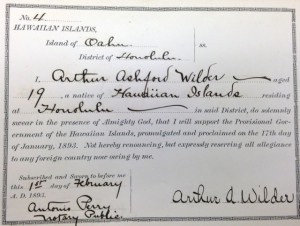 No. 4
HAWAIIAN ISLANDS,
Island of Oahu ss.
District of Honolulu.
I, Arthur Ashford Wilder aged
19, a native of Hawaiian Islands residing
at Honolulu in said District, do solemnly
swear in the presence of Almighty God, that I will support the Provisional
Government of the Hawaiian Islands, promulgated and proclaimed on the 17th day
of January, 1893. Not hereby renouncing, but expressly reserving all allegiance
to any foreign country now owing by me.
Subscribed and Sworn to before me
this 1st day of February
A. D. 1893.
Antonio Perry
Notary Public
Arthur A. Wilder